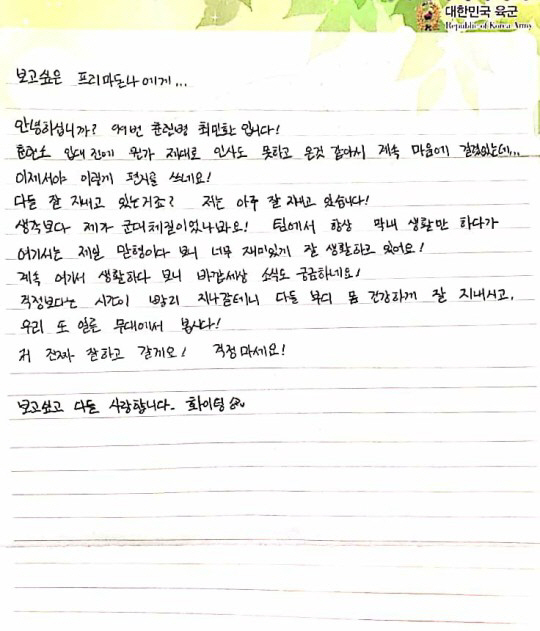 대한민국 육군
Republic of Korea Army
보고싶은 프리마돈나에게...
안녕하십니까? 번 훈련병 최민환 입니다!
훈련소 입대 전에 뭔가 제대로 인사도 못하고 온것 같아서 계속 마음에 걸렸었는데...
이제서야 이렇게 편지를 쓰네요!
다들 잘 지내고 있는거죠? 저는 아주 잘 지내고 있습니다!
생각보다 제가 군대체질이었나봐요! 팀에서 항상 막내 생활만 하다가
여기서는 제일 맏형이다 보니 너무 재미있게 잘 생활하고 있어요!
계속 여기서 생활하다 보니 바깥세상 소식도 궁금하네요!
걱정보다는 시간이 빨리 지나갈테니 다들 부디 몸 건강하게 잘 지내시고,
우리 또 얼른 무대에서 봅시다!
저 진짜 잘하고 갈게요! 걱정마세요!
보고싶고 다들 사랑합니다. 화이팅